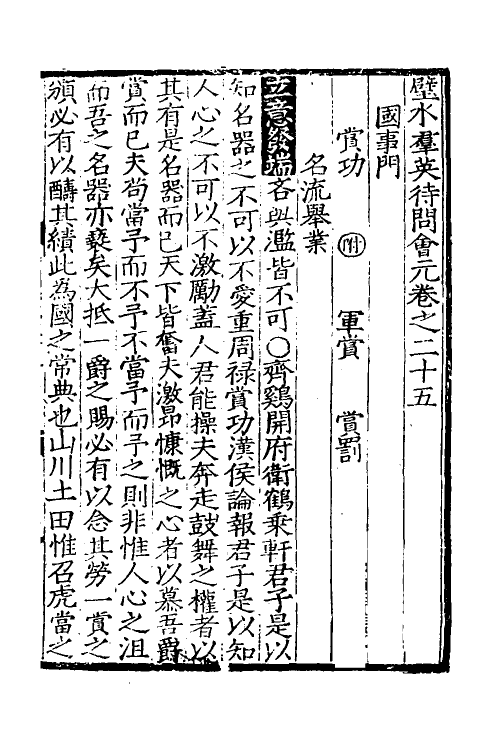 璧水羣英待問會元卷之二十五
國事門
賞功 附 軍賞 賞罰
名流舉業
立意發端 吝與濫皆不可〇齊鷄開府衛鶴乗軒君子是以
知名器之不可以不愛重周禄賞功漢侯論報君子是以知
人心之不可以不激勵盖人君能操夫奔走鼓舞之權者以
其有是名器而已天下皆奮夫激昻慷慨之心者以慕吾爵
賞而已夫苟當予而不予不當予而予之則非惟人心之沮
而吾之名器亦䙝矣大抵一爵之賜必有以念其勞一賞之
頒必有以酬其績此為國之常典也山川土田惟召虎當之